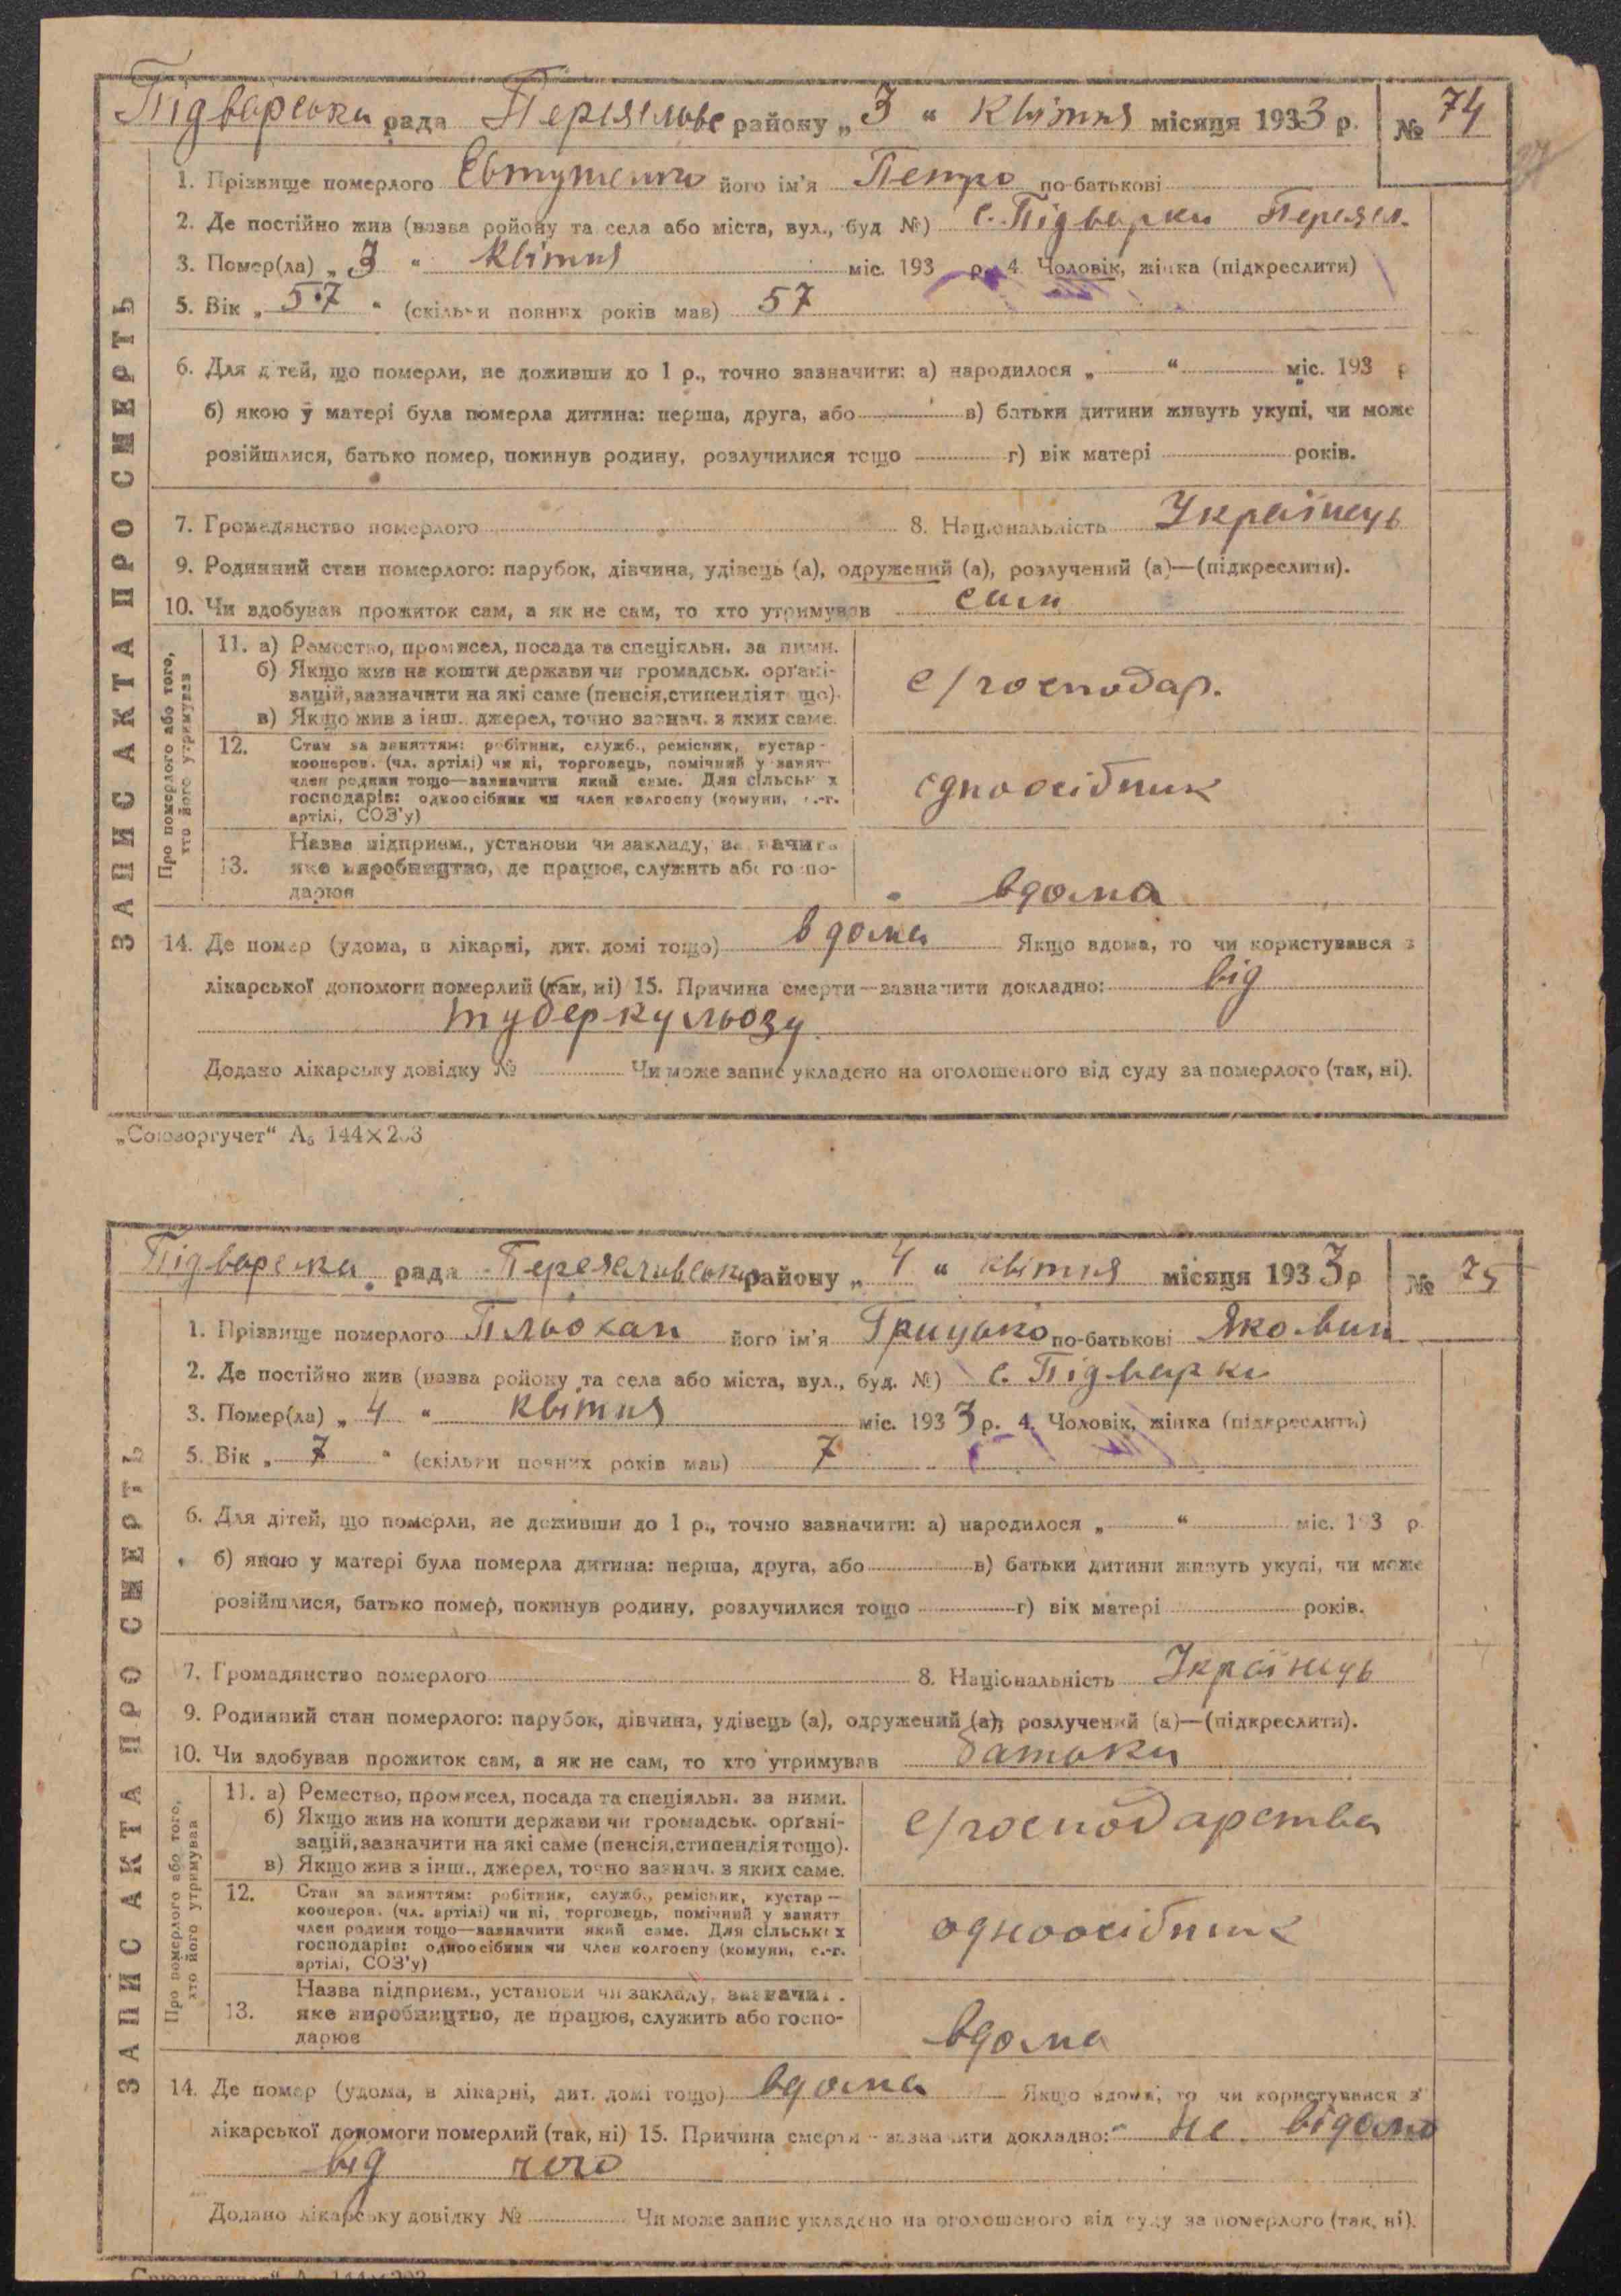 Підварська рада Переяславс району „3“ Квітня місяця 1933 р. № 74
1. Прізвище померлого Євтушенко його ім'я Петро по-батькові
2. Де постійно жив (назва ройону та села або міста, вул., буд №) с. Підварки Переясл.
3. Помер(ла) „3“ Квітня міс. 193 р. 4. Чоловік, жінка (підкреслити)
5. Вік „57“ (скільки повних років мав) 57
6. Для дітей, що померли, не доживши до 1 р., точно зазначити: а) народилося „ “ міс. 193 р
б) якою у матері була померла дитина: перша, друга, або в) батьки дитини живуть укупі, чи може
розійшлися, батько помер, покинув родину, розлучилися тощо г) вік матері років.
7. Громадянство померлого 8. Національність Українець
9. Родинний стан померлого: парубок, дівчина, удівець (а), одружений (а), розлучений (а)—(підкреслити).
10. Чи здобував прожиток сам, а як не сам, то хто утримував сам
ЗАПИС АКТА ПРО СМЕРТЬ
Про померлого або того,
хто його утримував
11. а) Ремество, промисел, посада та спеціяльн. за ними.
б) Якщо жив на кошти держави чи громадськ. орґані-
зацій, зазначити на які саме (пенсія, стипендія тощо).
в) Якщо жив з інш. джерел, точно зазнач. з яких саме.
с/господар.
12. Стан за заняттям: робітник, служб., ремісник, кустар-
кооперов. (чл. артілі) чи ні, торговець, помічний у занят
член родини тощо—зазначити який саме. Для сільських
господарів: одноосібник чи член колгоспу (комуни, с.-г.
артілі, СОЗ'у)
одноосібник
13. Назва підприєм., установи чи закладу, зазначити
яке виробництво, де працює, служить або госпо-
дарює
вдома
14. Де помер (удома, в лікарні, дит. домі тощо) вдома Якщо вдома, то чи користувався з
лікарської допомоги померлий (так, ні) 15. Причина смерти—зазначити докладно: від
туберкульозу
Додано лікарську довідку № Чи може запис укладено на оголошеного від суду за померлого (так, ні).
„Союзоргучет“ А₅ 144×203
Підварська рада Переяславської району „4“ квітня місяця 1933 р № 75
1. Прізвище померлого Пльохан його ім'я Грицько по-батькові Якович
2. Де постійно жив (назва ройону та села або міста, вул., буд. №) с. Підварки
3. Помер(ла) „4“ Квітня міс. 1933 р. 4. Чоловік, жінка (підкреслити)
5. Вік „7“ (скільки повних років мав) 7
6. Для дітей, що померли, не доживши до 1 р., точно зазначити: а) народилося „ “ міс. 193 р
б) якою у матері була померла дитина: перша, друга, або в) батьки дитини живуть укупі, чи може
розійшлися, батько помер, покинув родину, розлучилися тощо г) вік матері років.
7. Громадянство померлого 8. Національність Українець
9. Родинний стан померлого: парубок, дівчина, удівець (а), одружений (а), розлучений (а)—(підкреслити).
10. Чи здобував прожиток сам, а як не сам, то хто утримував батьки
ЗАПИС АКТА ПРО СМЕРТЬ
Про померлого або того,
хто його утримував
11. а) Ремество, промисел, посада та спеціяльн. за ними.
б) Якщо жив на кошти держави чи громадськ. орґані-
зацій, зазначити на які саме (пенсія, стипендія тощо).
в) Якщо жив з інш., джерел, точно зазнач. з яких саме.
с/господарства
12. Стан за заняттям: робітник, служб., ремісник, кустар—
кооперов. (чл. артілі) чи ні, торговець, помічний у занятт
член родини тощо—зазначити який саме. Для сільських
господарів: одноосібник чи член колгоспу (комуни, с.-г.
артілі, СОЗ'у)
одноосібник
13. Назва підприєм., установи чи закладу, зазначит.
яке виробництво, де працює, служить або госпо-
дарює
вдома
14. Де помер (удома, в лікарні, дит. домі тощо) вдома Якщо вдома, то чи користувався з
лікарської допомоги померлий (так, ні) 15. Причина смерти - зазначити докладно: не відомо
від чого
Додано лікарську довідку № Чи може запис укладено на оголошеного від суду за померлого (так, ні).
„Союзоргучет“ А₅ 144×203